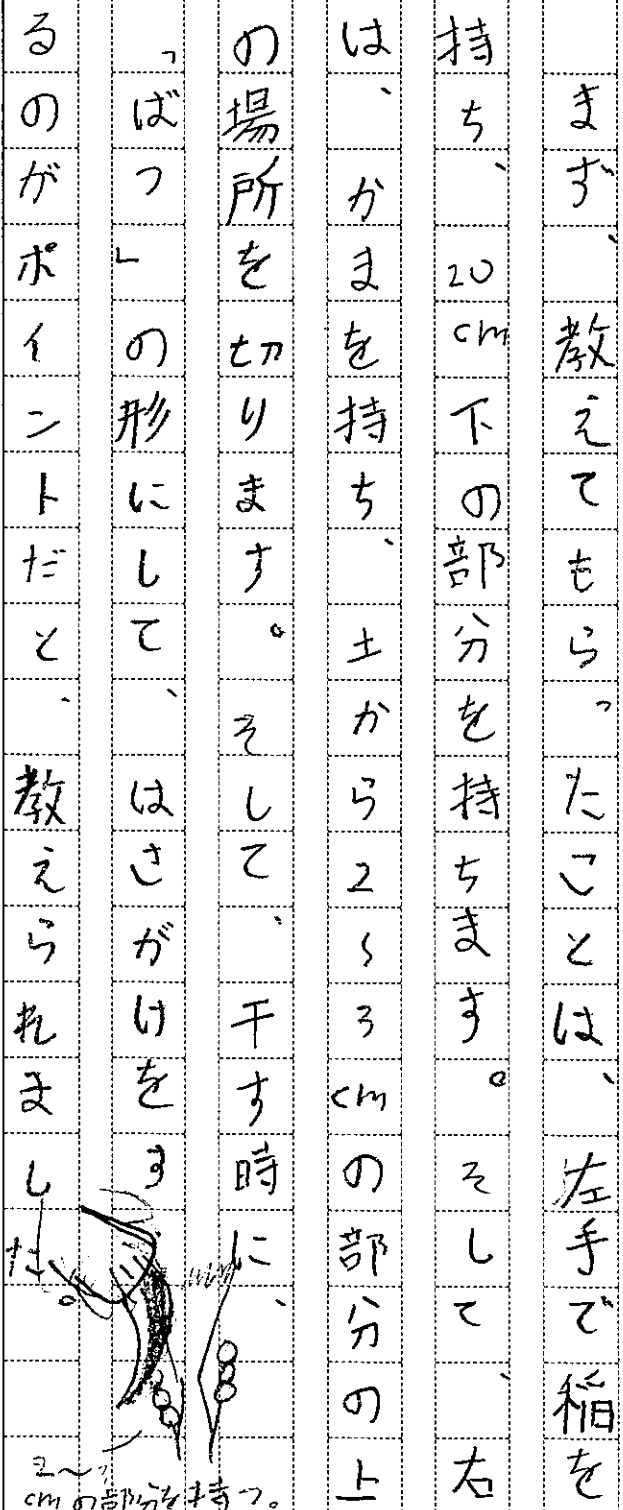 まず、教えてもらったことは、左手で稲を
持ち、20cm下の部分を持ちます。そして、右
は、かまを持ち、土から2〜3cmの部分の上
の場所を切ります。そして、干す時に、
「ばつ」の形にして、はさがけをす
るのがポイントだと、教えられました。
2〜
cmの部分を持つ。